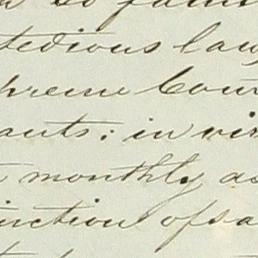 tedious law
hreme Cour
ants: in vir
monthly as
inction of sa